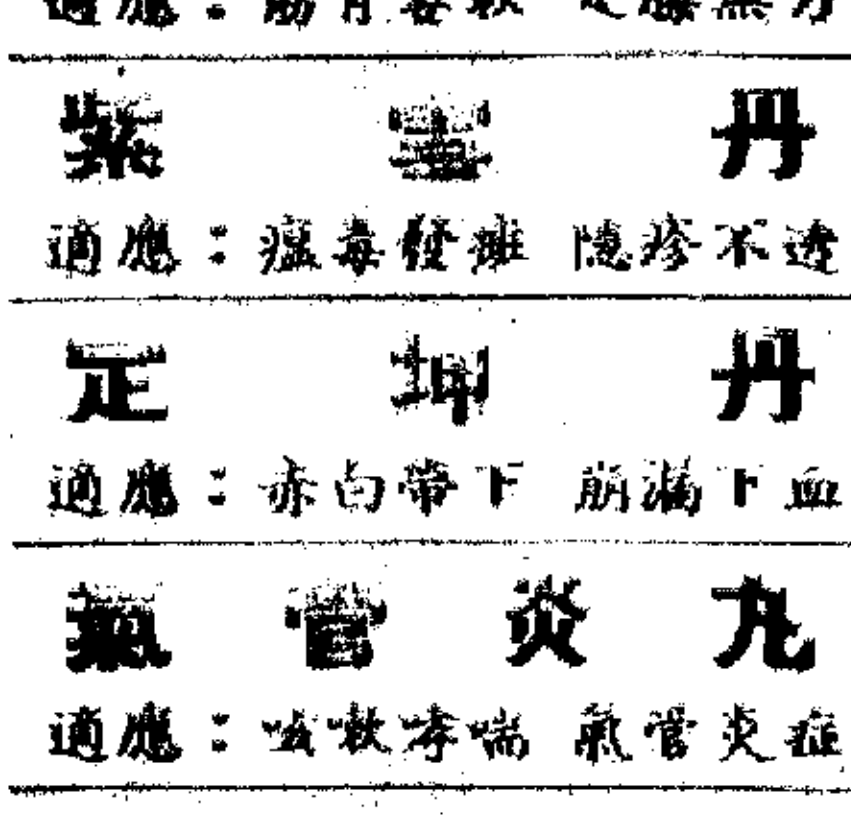 適應：筋骨 軟 無力
紫 丹
適應：瘟毒發斑 隱疹不透
正坤丹
適應：赤白帶下 崩漏下血
氣管炎丸
適應：咳嗽哮喘 氣管炎症